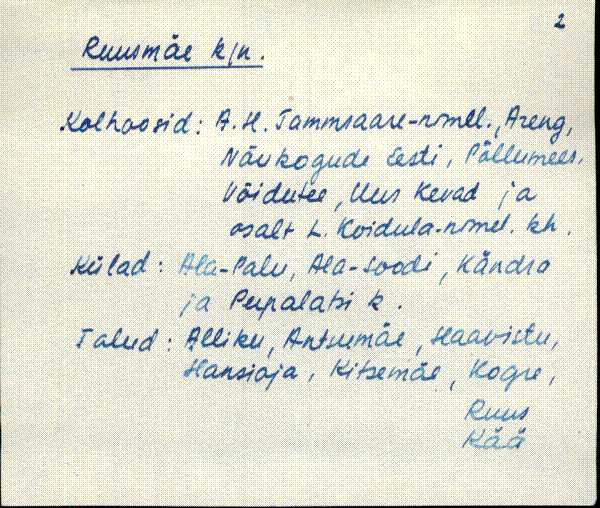 2
Ruusmäe k/n.
Kolhoosid: A. H. Tammsaare-nimel., Areng,
Nõukogude Eesti, Põllumees,
Võidutee, Uus Kevad ja
osalt L. Koidula-nimel. kh.
Külad: Ala-Palu, Ala-Soodi, Kändra
ja Pupalatsi k.
Talud: Alliku, Antsumäe, Haavistu,
Hansioja, Kitsemäe, Kogre,
Ruus
Kää